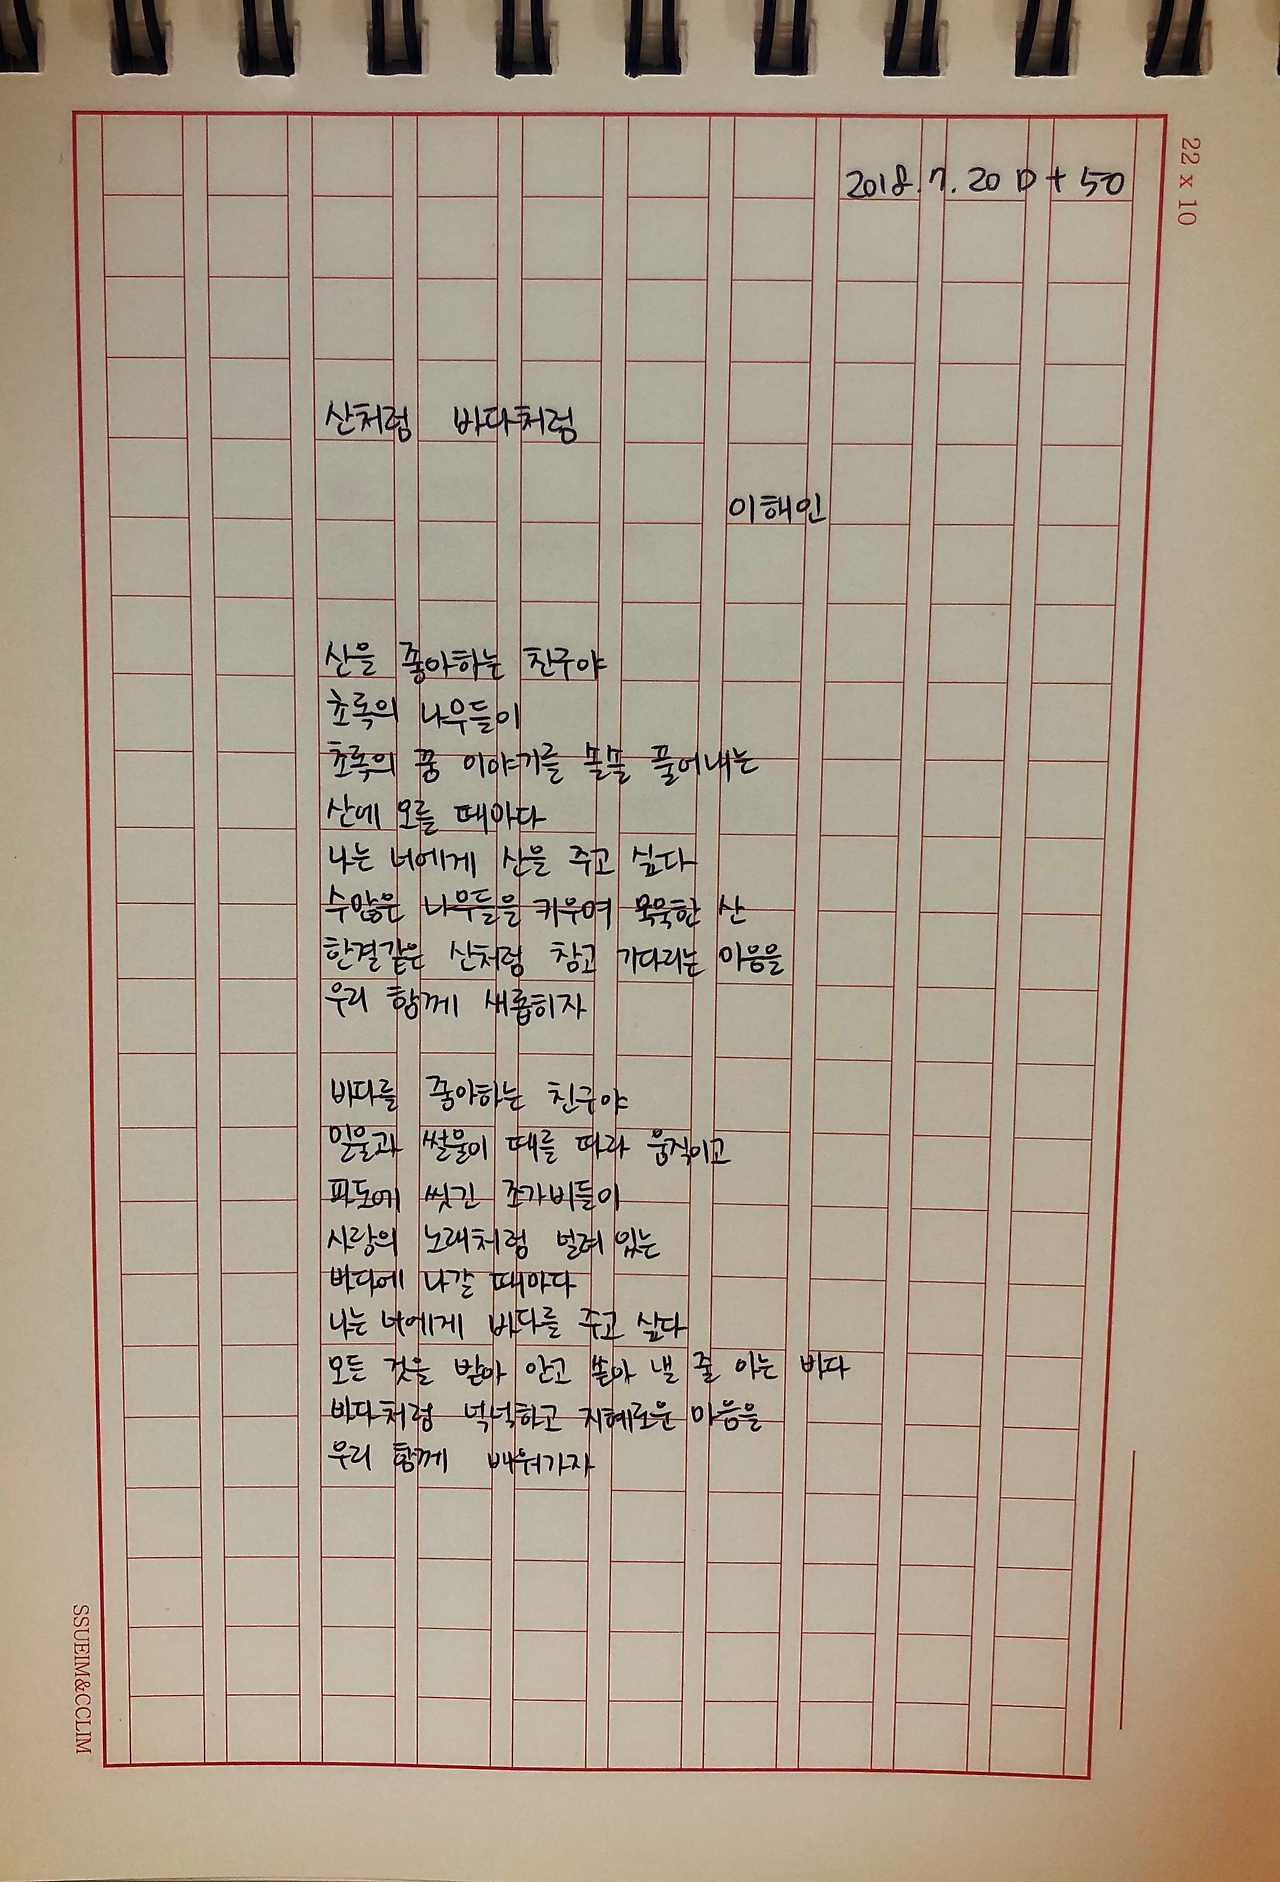 22 x 10
2018. 7. 20 D + 50
산처럼 바다처럼
이해인
산을 좋아하는 친구야
초록의 나무들이
초록의 꿈 이야기를 솔솔 풀어내는
산에 오를 때마다
나는 너에게 산을 주고 싶다
수많은 나무들을 키우며 묵묵한 산
한결같은 산처럼 참고 기다리는 마음을
우리 함께 새롭히자
바다를 좋아하는 친구야
밀물과 썰물이 때를 따라 움직이고
파도에 씻긴 조가비들이
사랑의 노래처럼 널려 있는
바다에 나갈 때마다
나는 너에게 바다를 주고 싶다
모든 것을 받아 안고 쏟아 낼 줄 아는 바다
바다처럼 넉넉하고 지혜로운 마음을
우리 함께 배워가자
SSUEIM&CCLIM